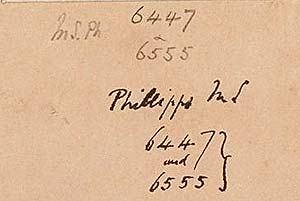 6447
M.S. Ph
6555
Phillipps MS
6447
and
6555